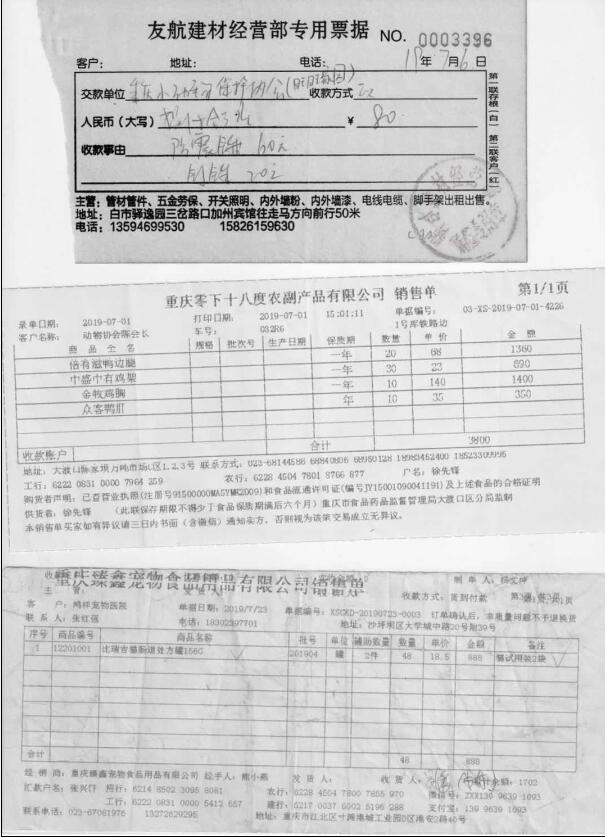 友航建材经营部专用票据 NO. 0003396
客户： 地址： 电话： 19年7月6日
交款单位 重庆小动物保护协会 收款方式
人民币（大写） ¥ 80
收款事由 防震锤 60元
20元
第一联存根（白） 第二联客户（红）
主营：管材管件、五金劳保、开关照明、内外墙粉、内外墙漆、电线电缆、脚手架出租出售。
地址：白市驿逸园三岔路口加州宾馆往走马方向前行50米
电话：13594699530 15826159630
重庆零下十八度农副产品有限公司 销售单 第1/1页
录单日期： 2019-07-01 打印日期： 2019-07-01 15:01:11 单据编号： 03-XS-2019-07-01-4226
客户名称： 动物协会陈会长 车号： 032R6 1号库铁路边
商品全名 规格 批次号 生产日期 保质期 数量 单价 金额
倍有滋鸭边腿 一年 20 68 1360
中盛中有鸡架 一年 30 23 690
金牧鸡胸 一年 10 140 1400
众客鸭肝 年 10 35 350
合计 3800
收款账户
地址：大渡口陈家坝万吨市场C区1.2.3号 联系方式：023-68144586 68840806 68950128 18983452400 18523309995
工行：6222 0831 0000 7964 259 农行：6228 4504 7801 8766 877 户名：徐先锋
购货者声明：已查营业执照(注册号91500000MA5YMK2D09)和食品流通许可证(编号JY15001090041191)及上述食品的合格证明
供货者：徐先锋 （此联保存期限不得少于食品保质期满后六个月）重庆市食品药品监督管理局大渡口区分局监制
本销售单买家如有异议请三日内书面（含微信）通知卖方，否则视为该笔交易成立无异议。
重庆臻鑫宠物食品用品有限公司销售单
制单人：杨文坤
主管： 收款方式：货到付款
客户：鸿祥宠物医院 单据日期：2019/7/23 单据编号：XSCKD-20190723-0003 订单确认后，非质量问题不予退换货
联系人：张红强 电话：18302397701 地址：沙坪坝区大学城中路20号附39号
序号 商品编号 商品名称 批号 单位 辅助数量 数量 单价 金额 备注
1 12201001 比瑞吉猫肠道处方罐156G 201904 罐 2件 48 18.5 888 猫试用装2袋
合计 48 888
经销商：重庆臻鑫宠物食品用品有限公司 经手人：熊小燕 发货人： 收货人： 1702
汇款户名：张兴 招行：6214 8502 3095 8081 农行：6228 4504 7800 7855 970 微信号：ZXX139 9639 1093
工行：6222 0831 0000 5412 657 建行：6217 0037 6002 5196 288 支付宝：139 9639 1093
联系电话：023-67081976 13272629295 地址：重庆市江北区寸滩港城工业园D区港安2路40号